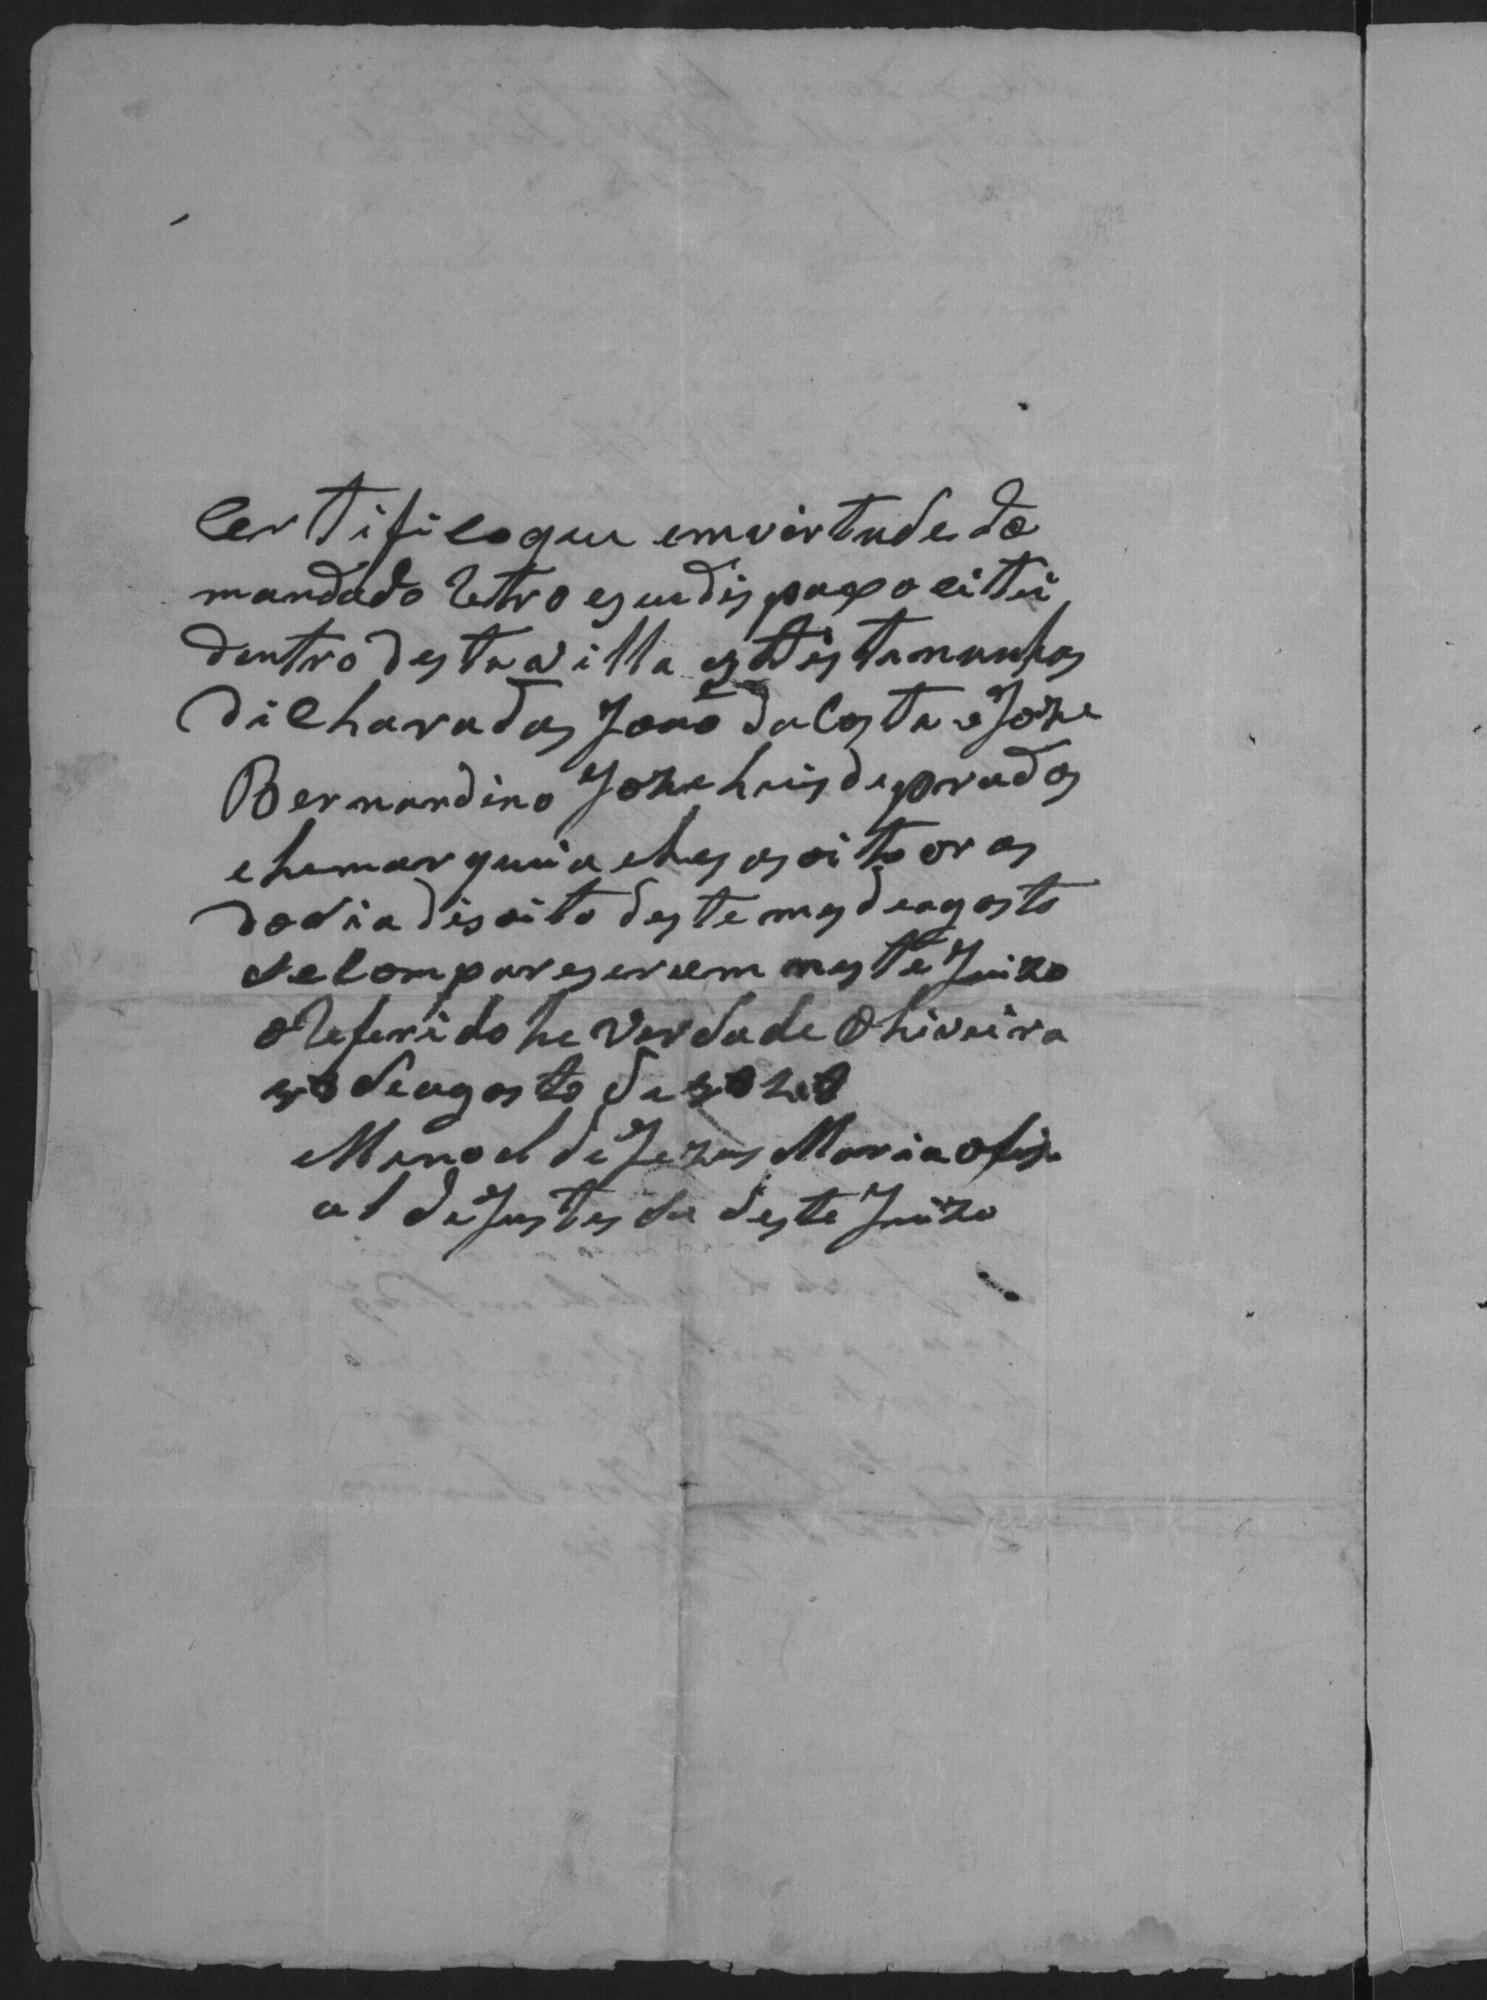 Certifico que emvirtude do
mandado Retro eseudispaxo citei
dentro destavilla astistamunhas
dicharadas João da Costa eJoze
Bernardino Joze Luis de prados
ehemarquei aelhes as oito oras
dodia disoito deste mes deagosto
decompareserem neste Juizo
o Referido he verdade Oliveira
deagosto de
Manoel de Jezus Maria ofisi
al deJustesa deste Juizo